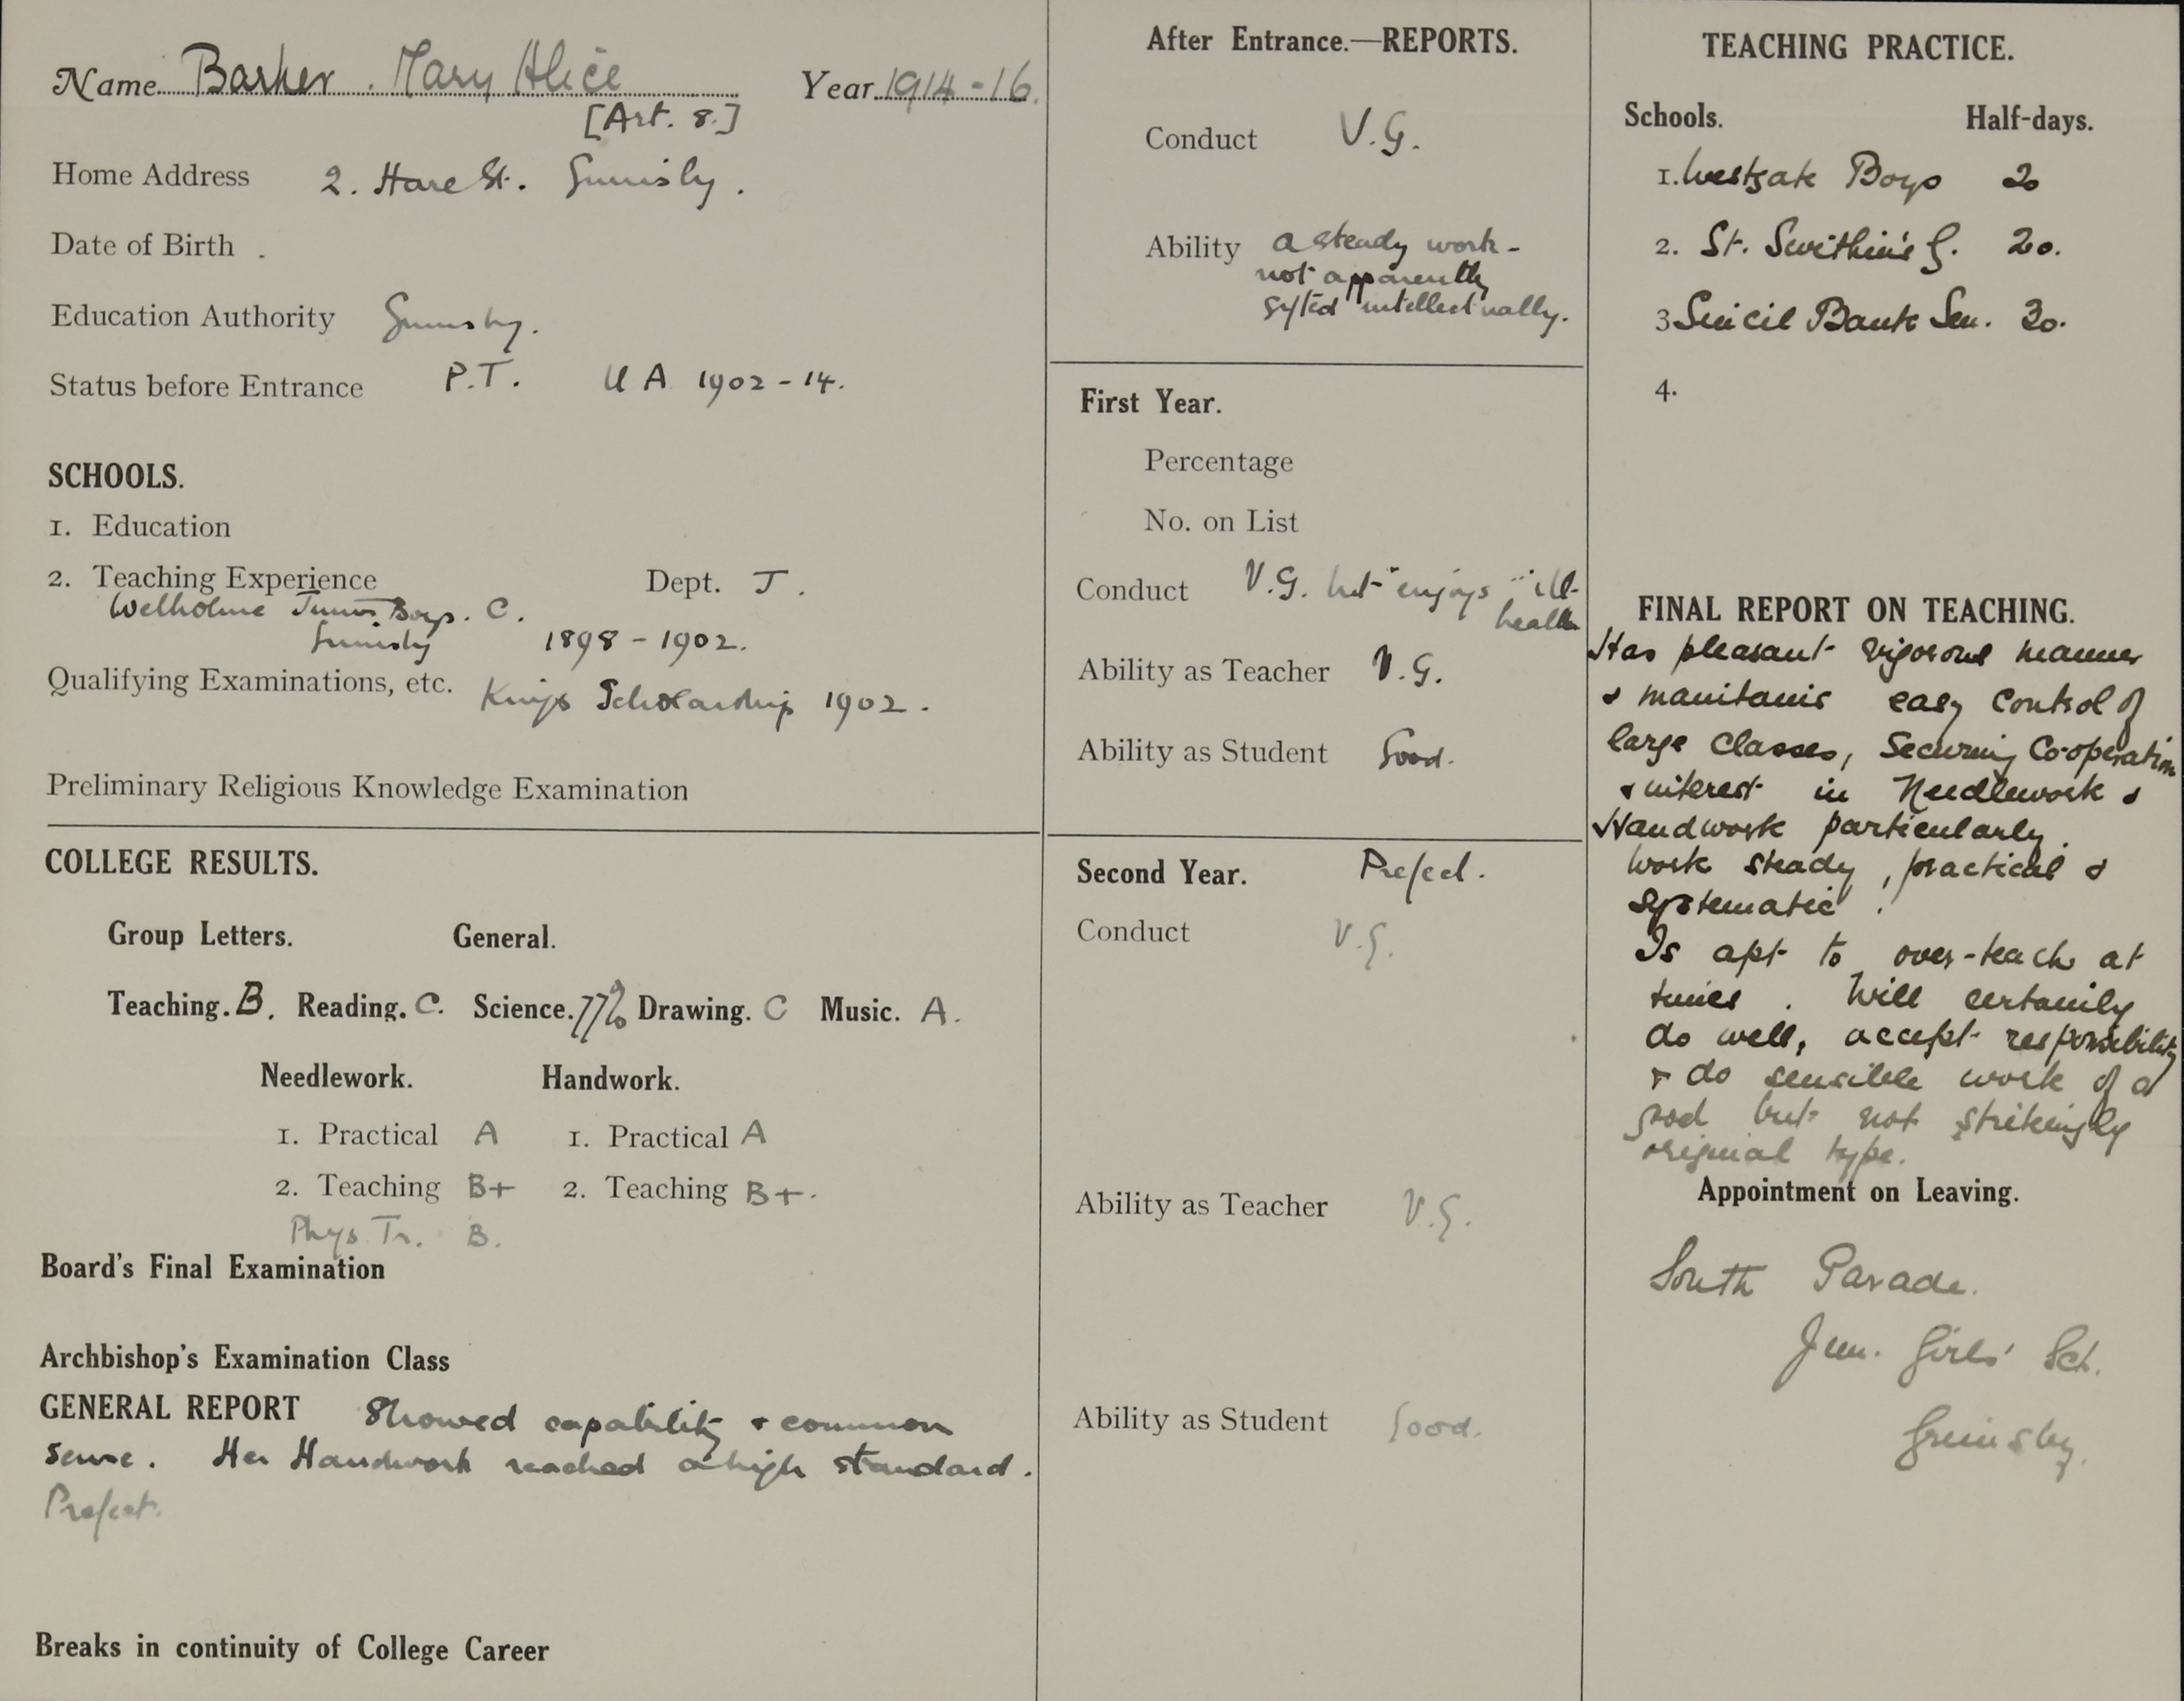 Name Barker. Mary Alice Year 1914-16.
[Art. 8.]
Home Address 2. Hare St. Grimsby.
Date of Birth .
Education Authority Grimsby.
Status before Entrance P.T. U A 1902-14.
SCHOOLS.
1. Education
2. Teaching Experience Dept. J.
Welholme Junior Boys. C.
Grimsby 1898-1902.
Qualifying Examinations, etc. Kings Scholarship 1902.
Preliminary Religious Knowledge Examination
COLLEGE RESULTS.
Group Letters. General.
Teaching. B. Reading. C. Science. 77% Drawing. C Music. A.
Needlework. Handwork.
1. Practical A 1. Practical A
2. Teaching B+ 2. Teaching B+.
Phys. Tr. B.
Board's Final Examination
Archbishop's Examination Class
GENERAL REPORT Showed capability & common
sense. Her Handwork reached a high standard.
Prefect.
Breaks in continuity of College Career
After Entrance.—REPORTS.
Conduct V.G.
Ability a steady work-
not apparently
gifted intellectually.
First Year.
Percentage
No. on List
Conduct V.G. but "enjoys" ill-
health
Ability as Teacher V.G.
Ability as Student Good.
Second Year. Prefect.
Conduct V.G.
Ability as Teacher V.G.
Ability as Student Good.
TEACHING PRACTICE.
Schools. Half-days.
1. Westgate Boys 20
2. St. Swithin's G. 20.
3 Sincil Bank Sen. 30.
4.
FINAL REPORT ON TEACHING.
Has pleasant vigorous manner
& maintains easy control of
large classes, securing Co-operation
& interest in Needlework &
Handwork particularly.
Work steady, practical &
systematic.
Is apt to over-teach at
times. Will certainly
do well, accept responsibility
& do sensible work of a
good but not strikingly
original type.
Appointment on Leaving.
South Parade.
Jun. Girls' Sch.
Grimsby.